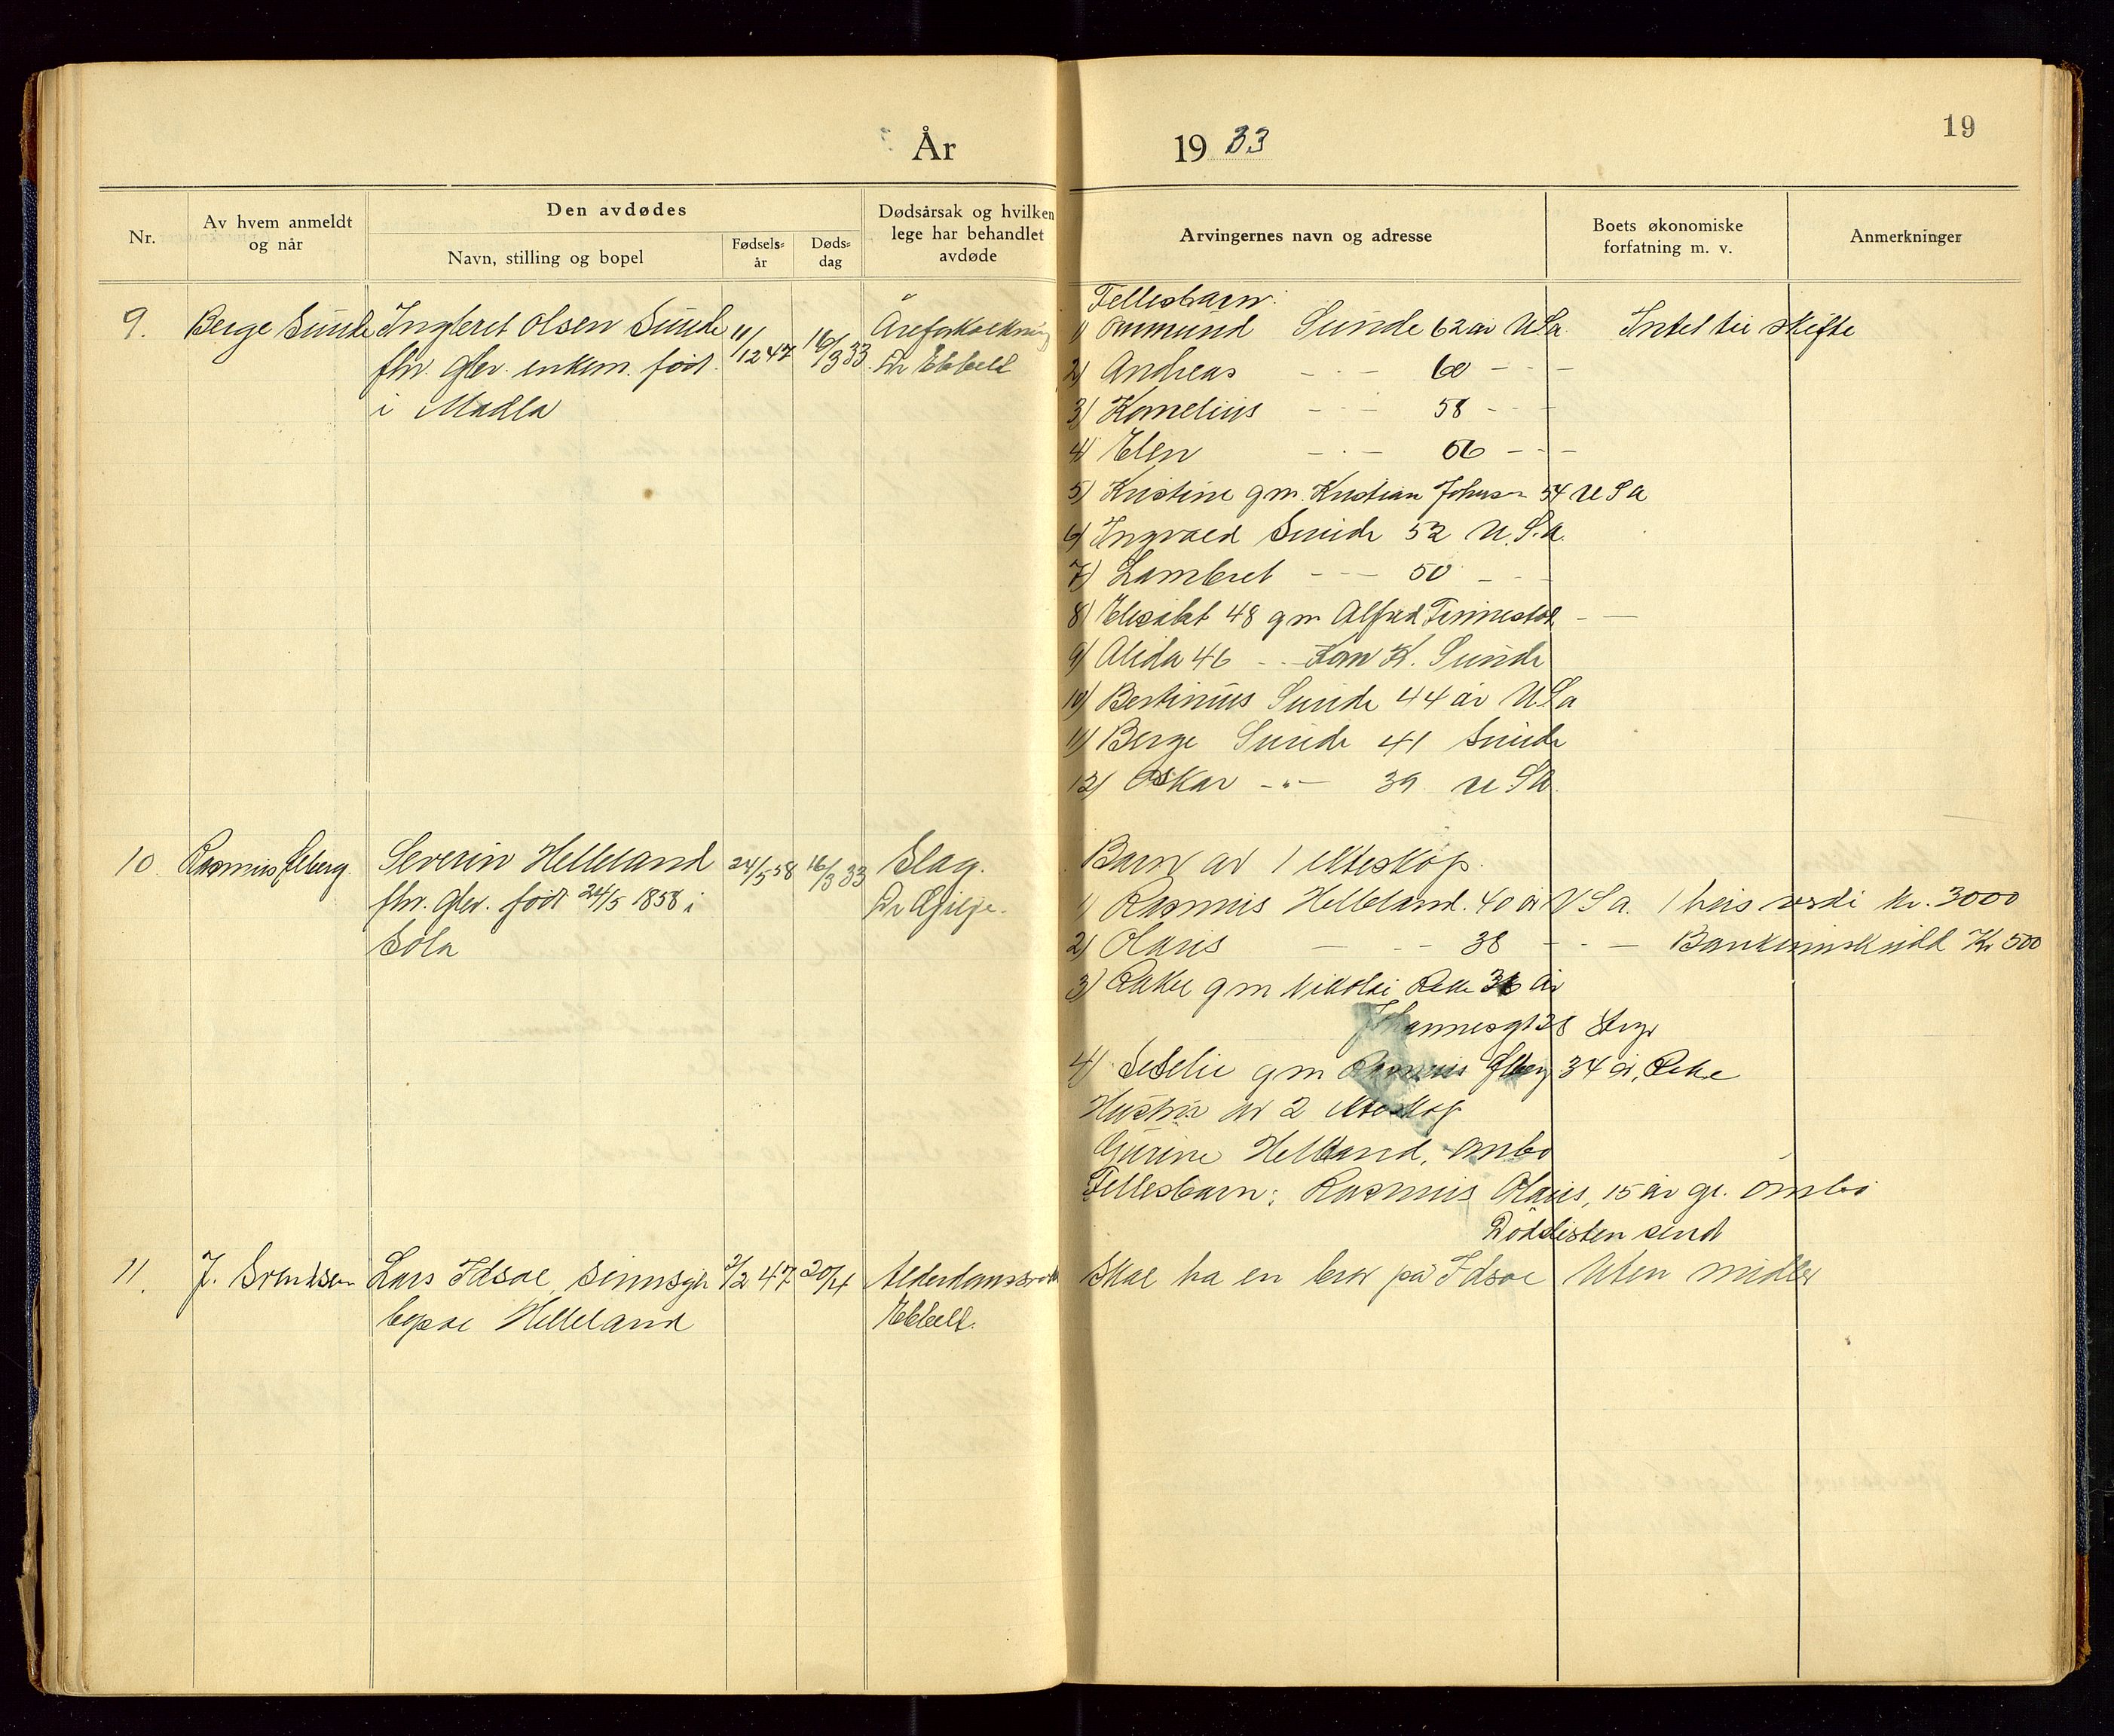 År 1933
19
Nr.
Av hvem anmeldt og når
Den avdødes
Navn, stilling og bopel
Fødsels-år
Døds-dag
Dødsårsak og hvilken lege har behandlet avdøde
Arvingernes navn og adresse
Boets økonomiske forfatning m. v.
Anmerkninger
9.
Berge Sunde
Ingleret Olsen Sunde
fhv. gbr. enkem. født
i Madla
11/12 47
16/3 33
Åreforkalkning
Dr Ebbell
Fellesbarn:
1) Ommund Sunde 62 år USA
Intet til skifte
2) Andreas - · - 60 - · -
3) Kornelius - · - 58 - · -
4) Elen - · - 56 - · -
5) Kristine gm. Kristian Johnsen 54 USA
6) Ingvald Sunde 52 U.S.A.
7) Lambret - - - 50 - -
8) Elisabet 48 gm Alfred Tinnestok - -
9) Alida 46 - - K. Sunde
10) Bertinius Sunde 44 år USA
11) Berge Sunde 41 Sunde
12) Oskar - " - 39 USA
10
Rasmus
Severin Helleland
fhv. gbr. født 24/5 1858 i
Sola
24/5 58
16/3 33
Slag.
Dr Gilje.
Barn av 1 ekteskap.
1) Rasmus Helleland. 40 år USA.
1 hus verdi kr. 3000
2) Olaus - - - 38 - · -
Bankinnskudd Kr 500
3) Rakel gm Nikolai Reke 36 år
Johannesgt 28 Stvgr
4) Selie gm Rasmus 34 år, Reke
Hustru av 2 ekteskap
Gurine Helleland, Ombo
Fellesbarn: Rasmus Olaus, 15 år gl. Ombo
Dødslisten send
11.
J. Svendsen
Lars Idsoe, sinnsyk
bopæl Helleland
2/2 47
20/4
Alderdomssvakh
Ebbell.
Skal ha en bror på Idsoe
Uten midler